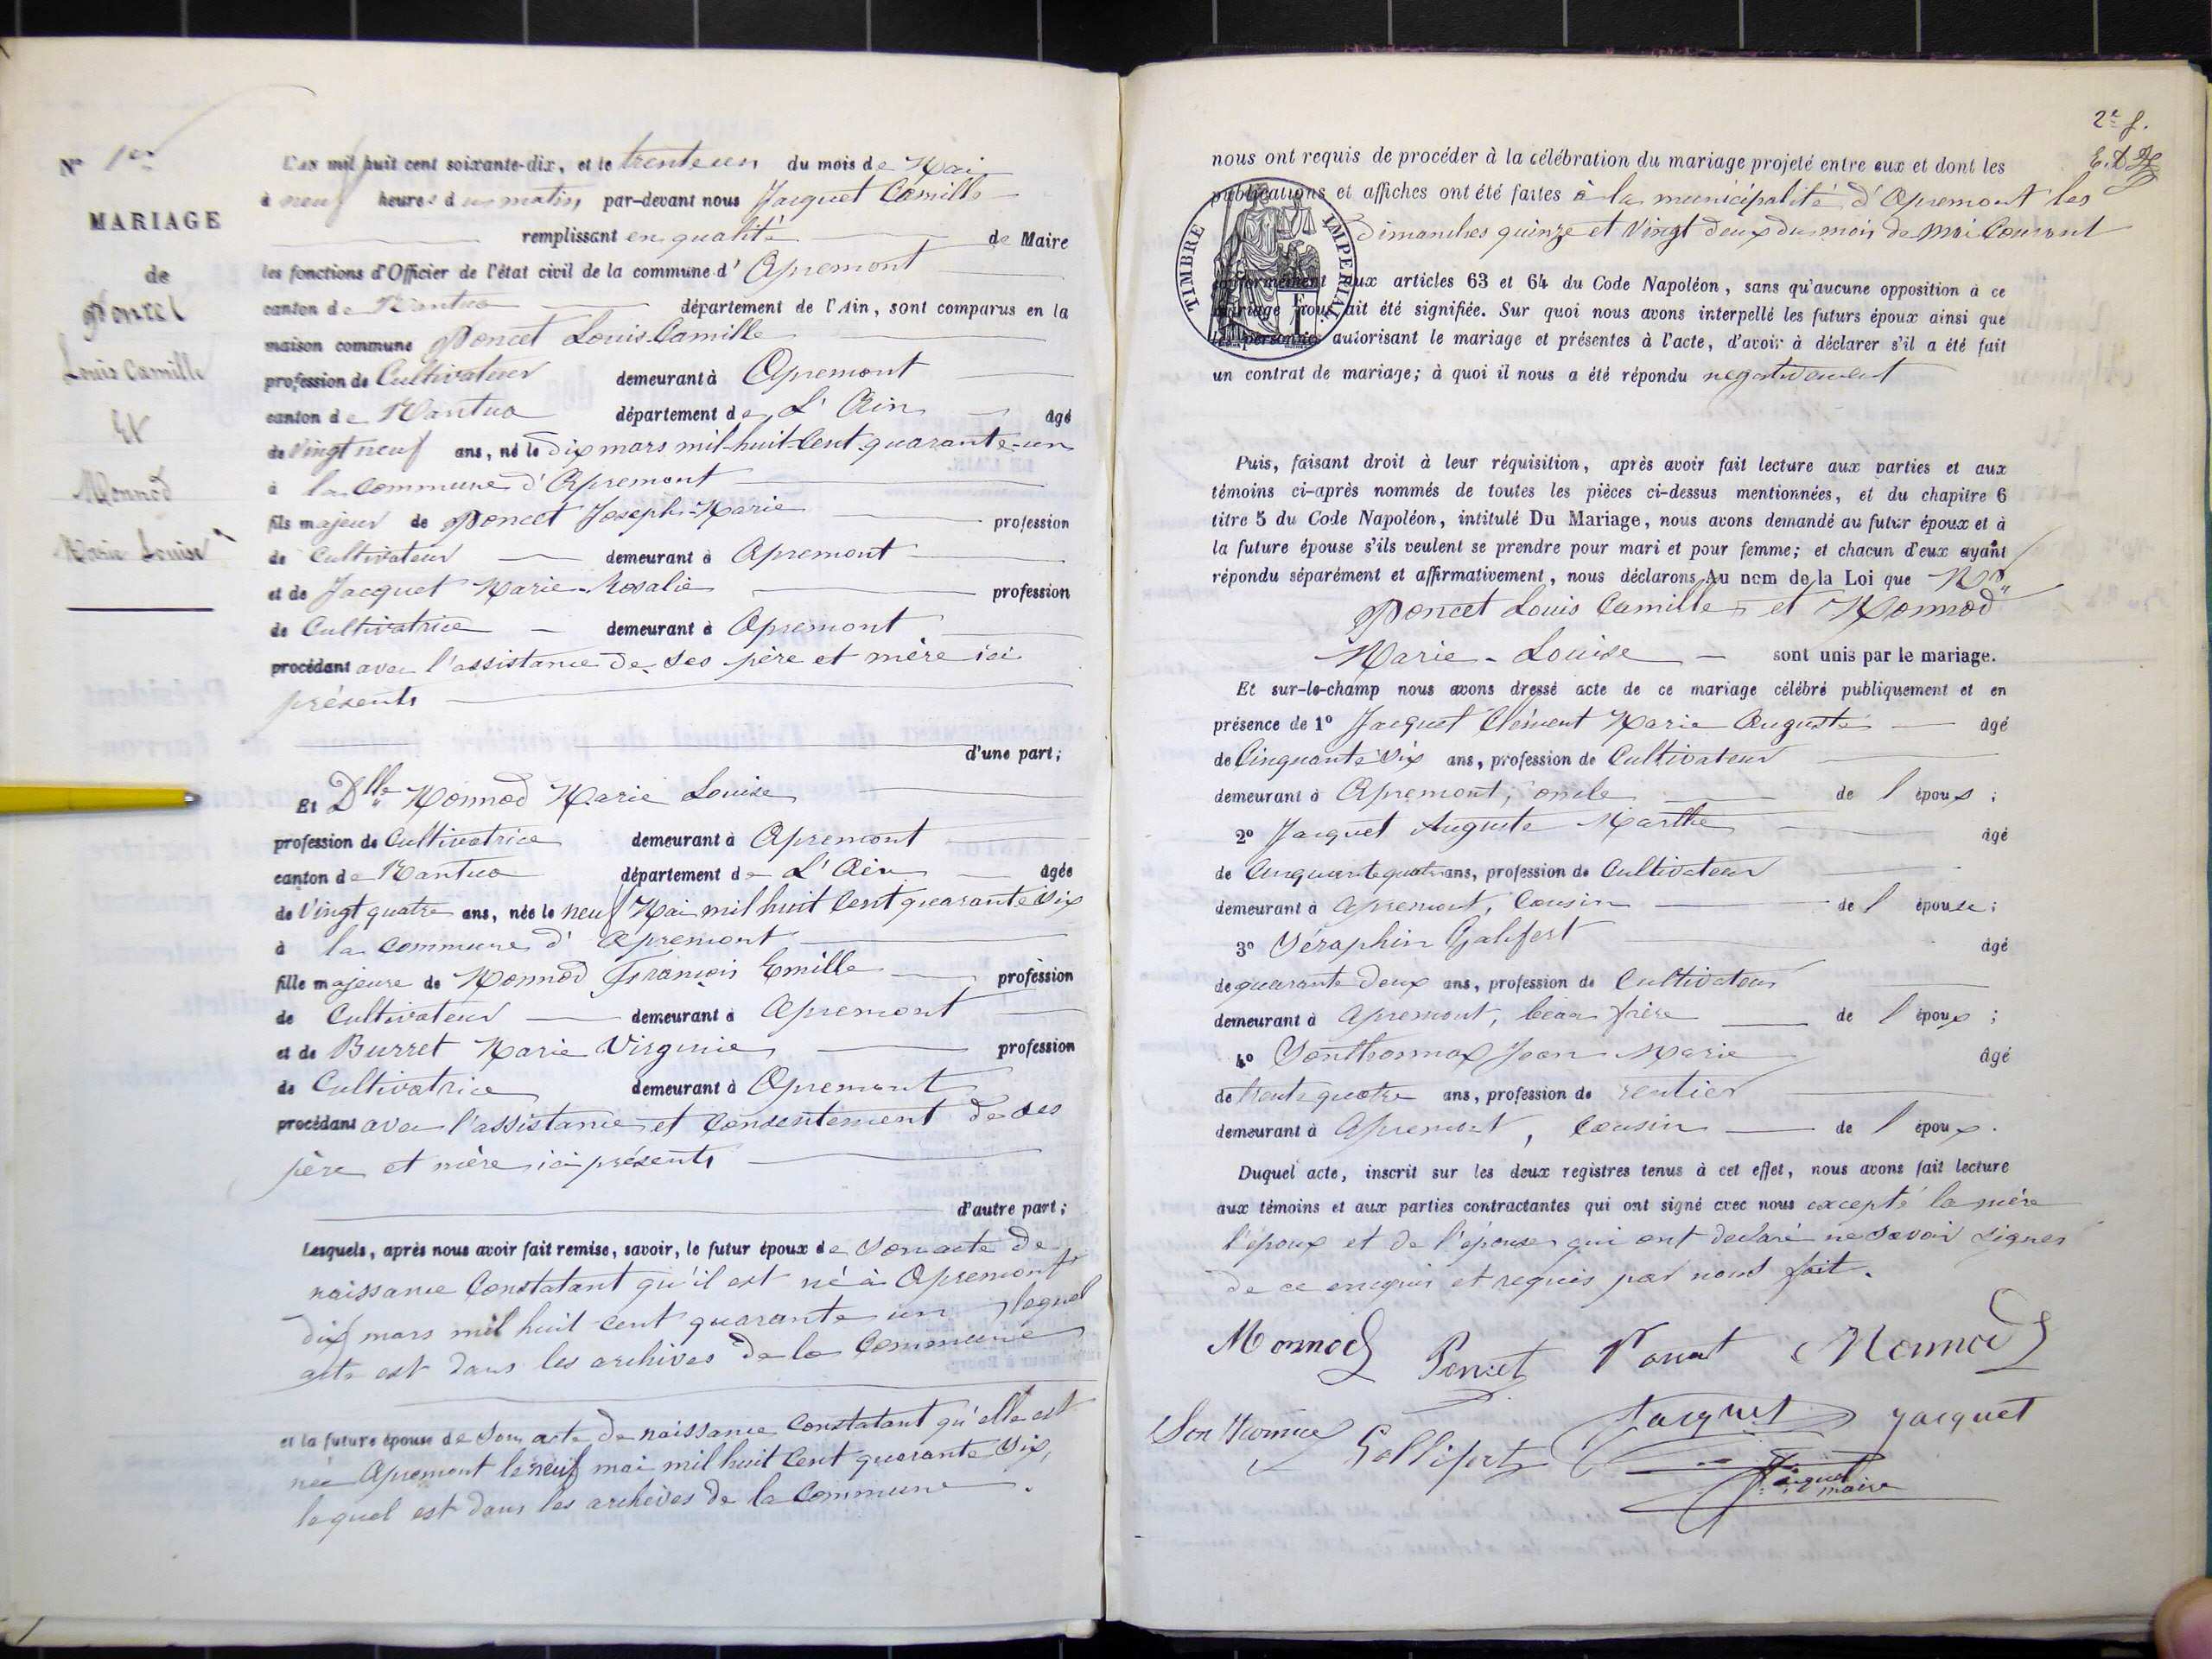 N° 1er
MARIAGE
de
Poncet
Louis Camille
Et
Monnod
Marie Louise
L'an mil huit cent soixante-dix, et le trente un du mois de Mai
à neuf heures du matin, par-devant nous Jacquet Camille
remplissant en qualité de Maire
les fonctions d'Officier de l'état civil de la commune d'Apremont
canton de Nantua département de l'Ain, sont comparus en la
maison commune Poncet Louis-Camille
profession de Cultivateur demeurant à Apremont
canton de Nantua département de L'Ain âgé
de Vingt neuf ans, né le dix mars mil-huit-Cent quarante-un
à la commune d'Apremont
fils majeur de Poncet Joseph-Marie profession
de Cultivateur demeurant à Apremont
et de Jacquet Marie-Rosalie profession
de Cultivatrice demeurant à Apremont
procédant avec l'assistance de ses père et mère ici
présents
d'une part;
Et Dlle Monnod Marie Louise
profession de Cultivatrice demeurant à Apremont
canton de Nantua département de L'Ain âgée
de Vingt quatre ans, née le neuf Mai mil huit Cent quarante Six
à la commune d'Apremont
fille majeure de Monnod François Emille profession
de Cultivateur demeurant à Apremont
et de Burret Marie Virginie profession
de Cultivatrice demeurant à Apremont
procédant avec l'assistance et Consentement de ses
père et mère ici présents
d'autre part;
Lesquels, après nous avoir fait remise, savoir, le futur époux de Son acte de
naissance Constatant qu'il est né à Apremont
dix mars mil huit cent quarante un lequel
acte est dans les archives de la Commune
et la future épouse de Son acte de naissance Constatant qu'elle est
née Apremont le neuf mai mil huit Cent quarante Six,
lequel est dans les archives de la Commune.
2e f.
nous ont requis de procéder à la célébration du mariage projeté entre eux et dont les
publications et affiches ont été faites à la municipalité d'Apremont les
Dimanches quinze et Vingt deux du mois de Mai Courant
TIMBRE IMPERIAL
conformément aux articles 63 et 64 du Code Napoléon, sans qu'aucune opposition à ce
mariage nous ait été signifiée. Sur quoi nous avons interpellé les futurs époux ainsi que
les personnes autorisant le mariage et présentes à l'acte, d'avoir à déclarer s'il a été fait
un contrat de mariage; à quoi il nous a été répondu negativement
Puis, faisant droit à leur réquisition, après avoir fait lecture aux parties et aux
témoins ci-après nommés de toutes les pièces ci-dessus mentionnées, et du chapitre 6
titre 5 du Code Napoléon, intitulé Du Mariage, nous avons demandé au futur époux et à
la future épouse s'ils veulent se prendre pour mari et pour femme; et chacun d'eux ayant
répondu séparément et affirmativement, nous déclarons Au nom de la Loi que
Poncet Louis Camille et Monnod
Marie-Louise sont unis par le mariage.
Et sur-le-champ nous avons dressé acte de ce mariage célébré publiquement et en
présence de 1° Jacquet Clément Marie Auguste âgé
de Cinquante Six ans, profession de Cultivateur
demeurant à Apremont, oncle de l'époux;
2° Jacquet Auguste Marthe âgé
de Cinquante quatre ans, profession de Cultivateur
demeurant à Apremont, Cousin de l'épouse;
3° Séraphin Galifert âgé
de quarante deux ans, profession de Cultivateur
demeurant à Apremont, beau frère de l'époux;
4° Sonthonnax Jean Marie âgé
de trente quatre ans, profession de rentier
demeurant à Apremont, Cousin de l'époux.
Duquel acte, inscrit sur les deux registres tenus à cet effet, nous avons fait lecture
aux témoins et aux parties contractantes qui ont signé avec nous excepté la mère
l'époux et de l'épouse qui ont déclaré ne savoir signer
de ce enquis et requis par nous fait.
Monnod Poncet Poncet Monnod
Sonthonnax Gallifert Jacquet Jacquet
Jacquet
maire